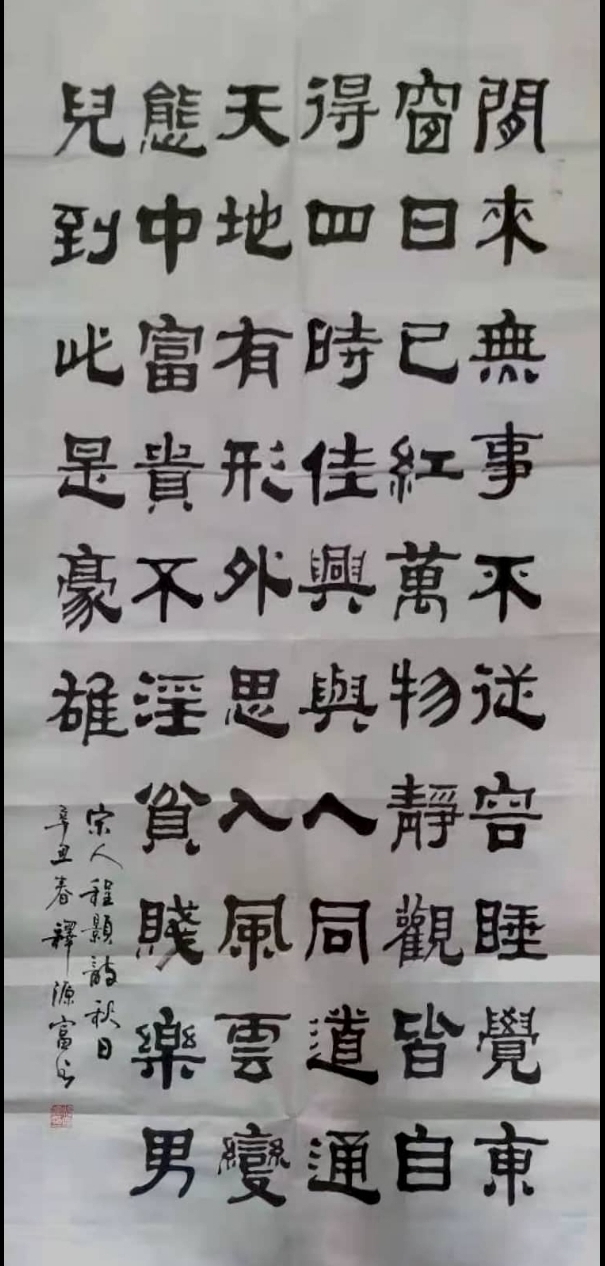 閒來無事不從容睡覺東
窗日已紅萬物靜觀皆自
得四時佳興與人同道通
天地有形外思入風雲變
態中富貴不淫貧賤樂男
兒到此是豪雄
宋人程顥詩秋日
辛丑春釋源富书